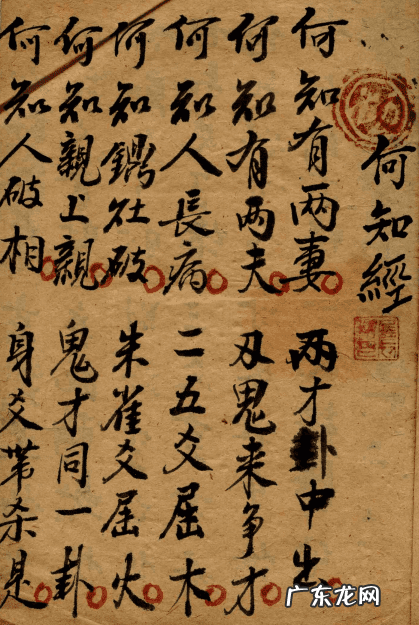 何知經
何知有两妻 两才卦中出
何知有两夫 刄鬼来争才
何知人長病 二五爻屈木
何知鍋灶破 朱雀爻屈火
何知親上親 鬼才同一卦
何知人破相 身爻带杀是
广东龙网